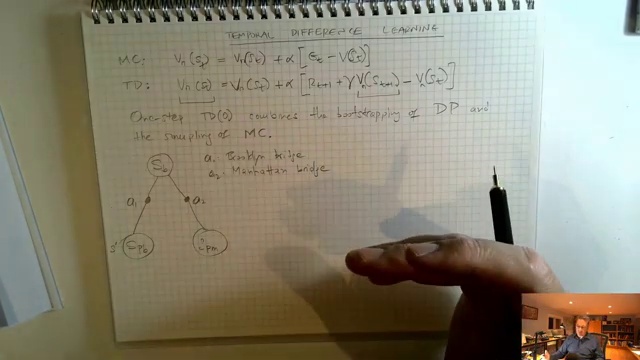 TEMPORAL DIFFERENCE LEARNING
MC: Vπ(St) = Vπ(St) + α [Gt − V(St)]
TD: Vπ(S) = Vπ(St) + α [Rt+1 + γ Vπ(St+1) − Vπ(St)]
One-step TD(0) combines the bootstrapping of DP and
the sampling of MC.
a1 Brooklyn bridge
a2: Manhattan bridge
Sb
a1 a2
S' Spb Spm